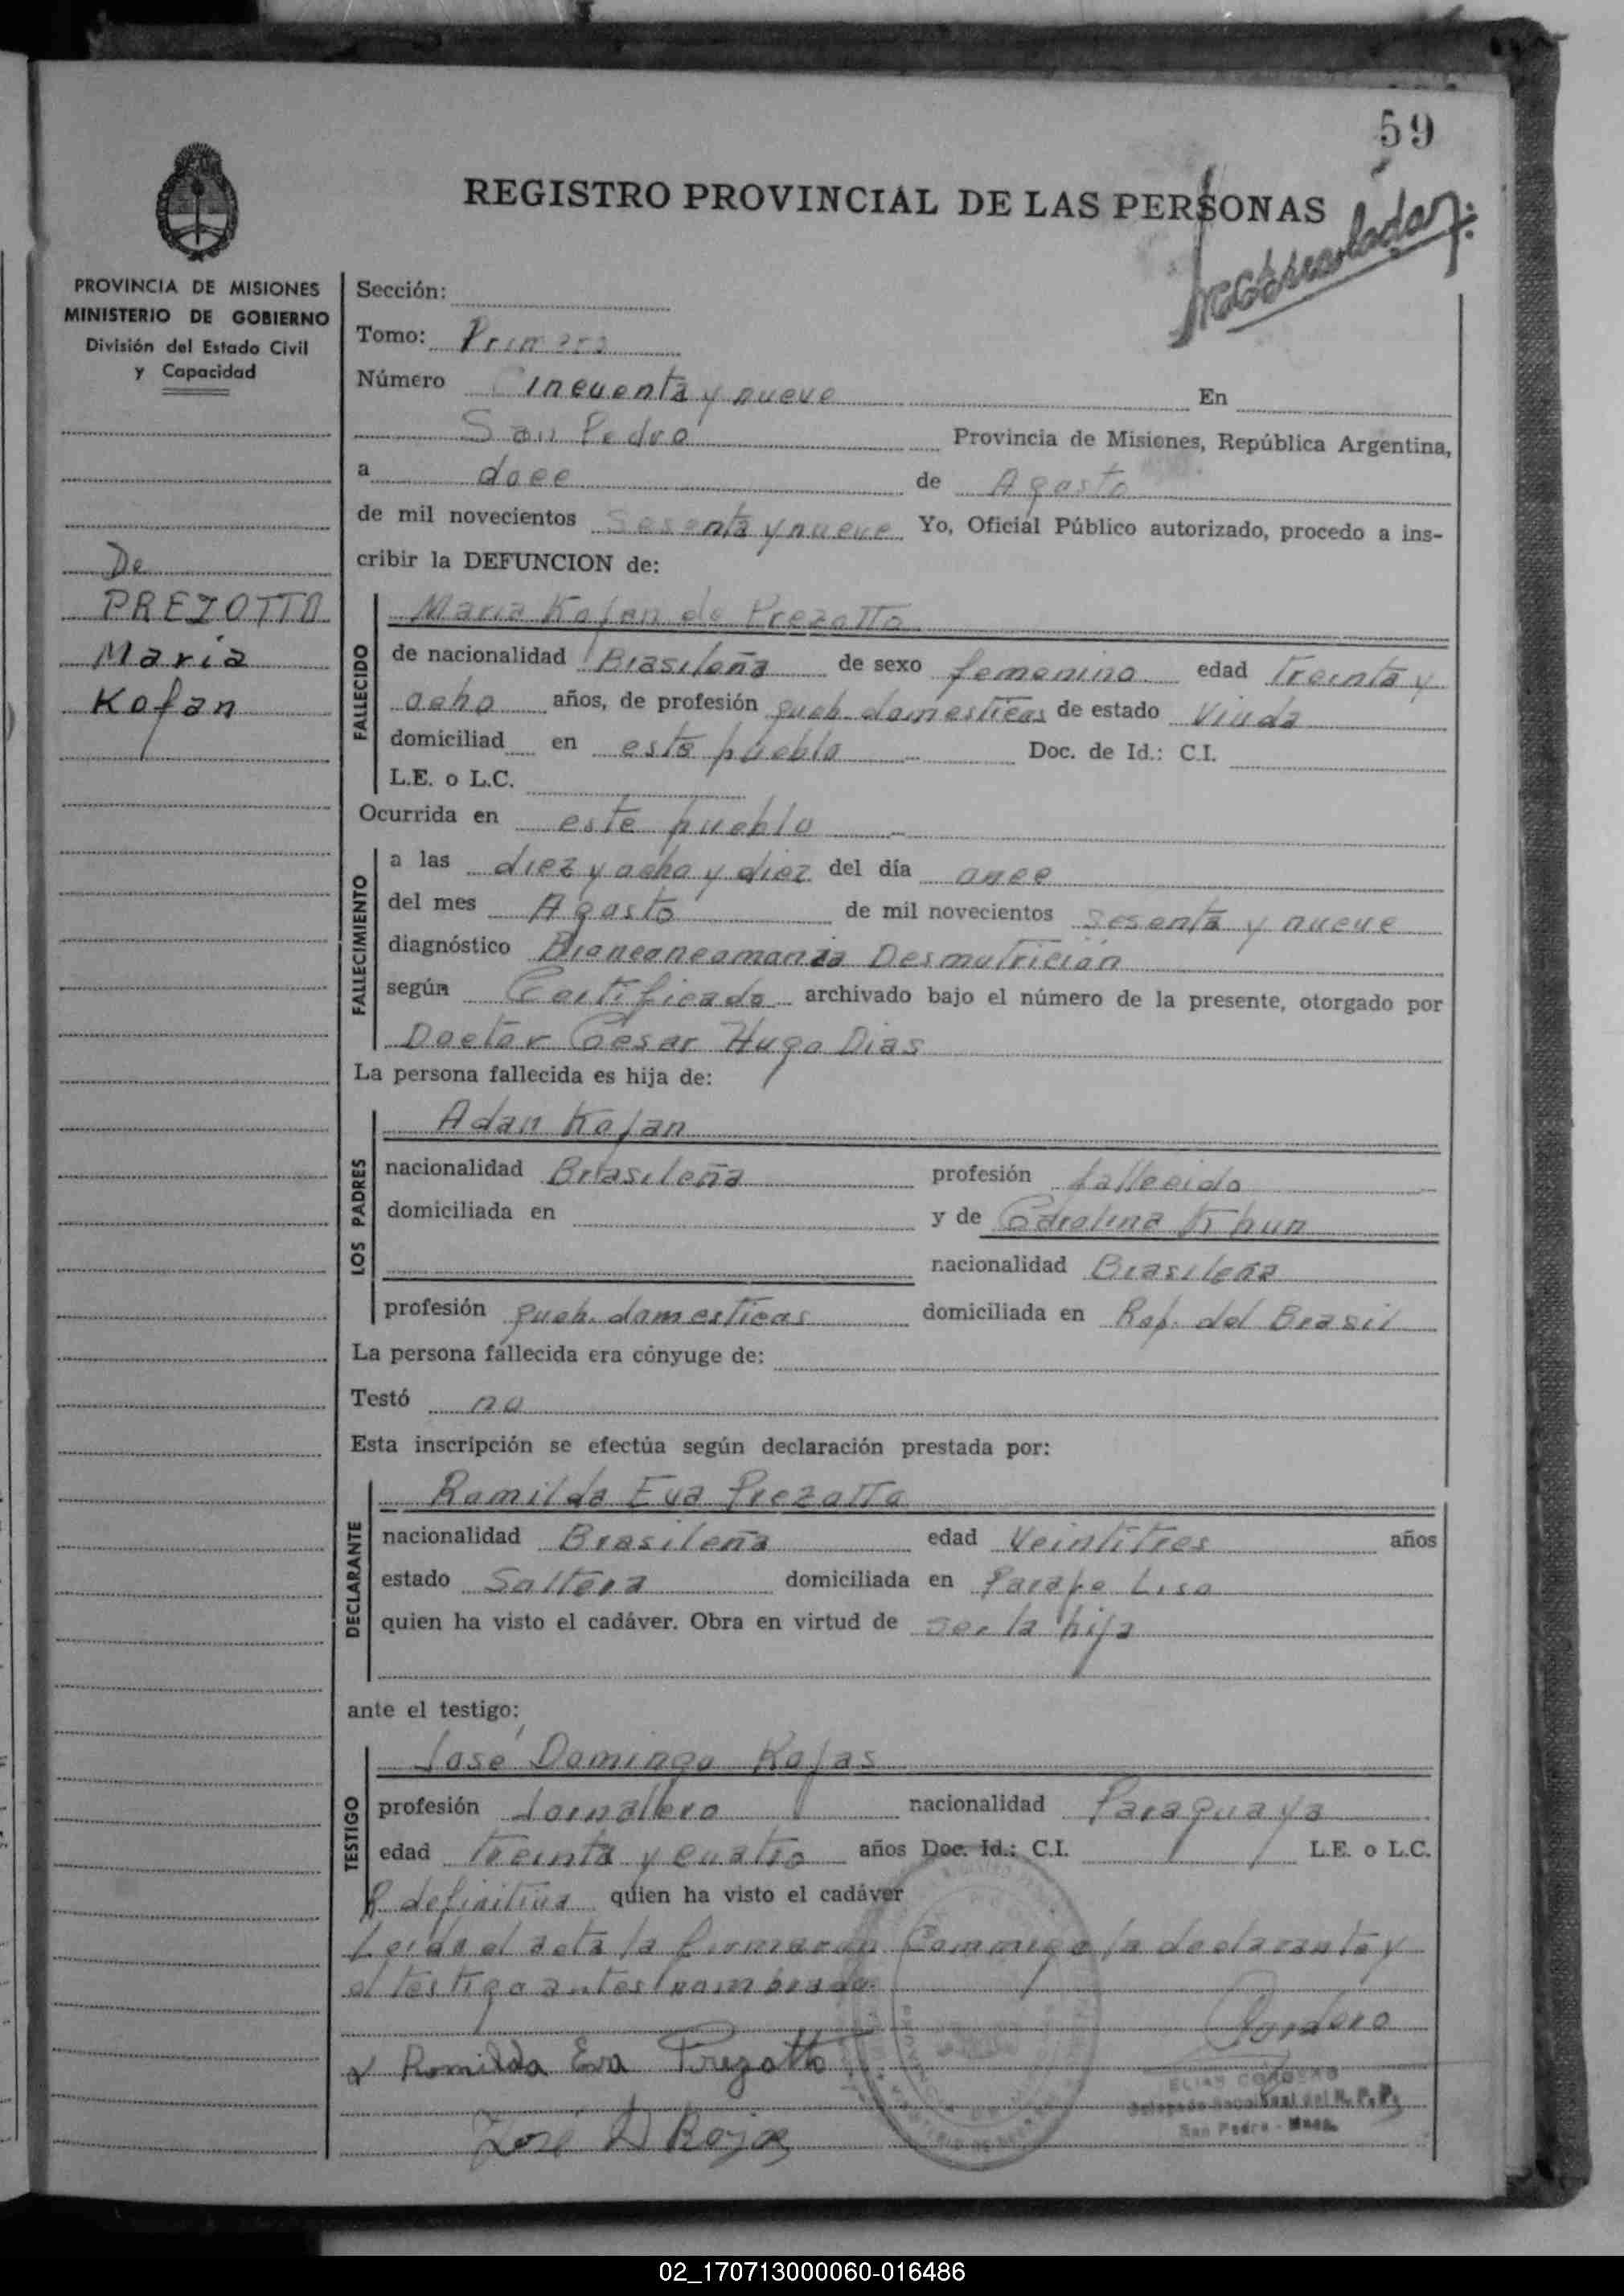 59
REGISTRO PROVINCIAL DE LAS PERSONAS
PROVINCIA DE MISIONES
MINISTERIO DE GOBIERNO
División del Estado Civil
y Capacidad
De
PREZOTTO
Maria
Kofan
Sección:
Tomo: Primero
Número Cincuenta y nueve En
San Pedro Provincia de Misiones, República Argentina,
a doce de Agosto
de mil novecientos Sesenta y nueve Yo, Oficial Público autorizado, procedo a ins-
cribir la DEFUNCION de:
FALLECIDO
Maria Kofan de Prezotto
de nacionalidad Brasileña de sexo femenino edad treinta y
ocho años, de profesión queh. domesticos de estado Viuda
domiciliad en este pueblo Doc. de Id.: C.I.
L.E. o L.C.
Ocurrida en este pueblo
FALLECIMIENTO
a las diez y ocho y diez del día once
del mes Agosto de mil novecientos sesenta y nueve
diagnóstico Desnutrición
según Certificado archivado bajo el número de la presente, otorgado por
Doctor Cesar Hugo Dias
La persona fallecida es hija de:
LOS PADRES
Adan Kofan
nacionalidad Brasileña profesión fallecido
domiciliada en y de Carolina Khun
nacionalidad Brasileña
profesión queh. domesticos domiciliada en Rep. del Brasil
La persona fallecida era cónyuge de:
Testó no
Esta inscripción se efectúa según declaración prestada por:
DECLARANTE
Romilda Eva Prezotto
nacionalidad Brasileña edad Veintitres años
estado Soltera domiciliada en
quien ha visto el cadáver. Obra en virtud de ser la hija
ante el testigo:
TESTIGO
José Domingo Rojas
profesión Jornallero nacionalidad Paraguaya
edad treinta y cuatro años Doc. Id.: C.I. L.E. o L.C.
R. definitiva quien ha visto el cadáver
Leida el acta la firmaron Conmigo la declarante y
el testigo antes nombrado.
Cordero
Romilda Eva Prezotto
ELIAS CORDERO
San Pedro - Mnes.
José D Rojas
02_170713000060-016486